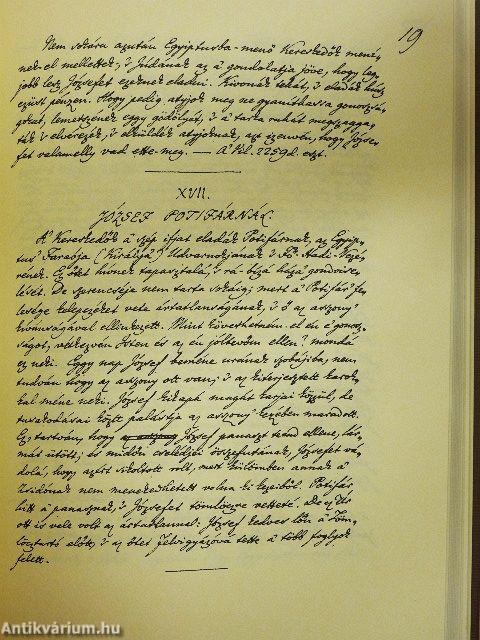 19
Nem sokára azután Egyiptusba-menő Kereskedők mené-
nek-el mellettek, 's Júdának az a' gondolatja jöve, hogy leg-
jobb lesz Józsefet ezeknek eladni. Kivonák tehát, 's eladák húsz
ezüst pénzen. Hogy pedig atyjok meg ne gyaníthassa gonoszsá-
gokat, lemetszének eggy gödölyét, 's a' tarka ruhát megszagga-
ták 's elvérezék, 's elküldék atyjoknak, azt izenvén, hogy Józse-
fet valamelly vad ette-meg. — A' Vil. 2259d. eszt.
XVII.
JÓZSEF POTIFÁRNÁL.
A' Kereskedők a' szép ifjat eladák Potifárnak, az Egyip-
tus' Faraója (Királyja) Udvarnokjának 's Fő-Hadi-Vezé-
rének. Ez őtet hívnek tapasztalá, 's rá-bízá háza' gondvise-
lését. De szerencséje nem tarta sokáig; mert a' Potifár' fe-
lesége kelepczéket vete ártatlanságának, 's ő az asszony'
kívánságával ellenkezett. Mint követhetném-el én e' gonosz-
ságot, vétkezvén Isten és az én jóltevőm ellen? mondá
ez neki. Eggy nap József beméne urának szobájába, nem
tudván hogy az asszony ott van; 's az kiterjesztett karok-
kal méne neki. József kikapá magát karjai közzűl, de
tusakodásai közt palástja az asszony' kezében maradott.
Ez, tartván, hogy József panaszt teend ellene, lár-
mát ütött; és midőn cselédjei összefutának, Józsefet vá-
dolá, hogy azért sikoltott volt, mert különben annak a'
Zsidónak nem menekedhetett volna-ki kezeiből. Potifár
hitt a' panasznak, 's Józsefet tömlöczre vetteté. De az Isten
ott is vele volt az ártatlannal: József kedves lőn a' Töm-
löcztartó előtt, 's az őtet Felvigyázóvá tette a' több foglyok
felett.
Antikvárium.hu